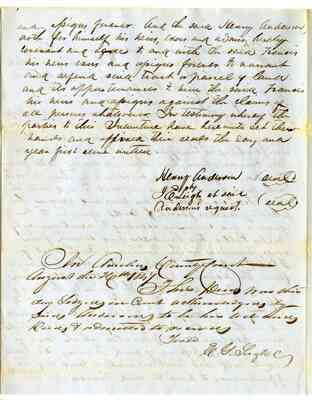 and assigns forever. And the said Henry Anderson
doth for himself his heirs exrs and admrs hereby
covenant and agree to and with the said Francis
his heirs exrs and assigns forever to warrant
and defend said tract or parcel of land
and its appurtenances to him the said Francis
his heirs and assigns against the claims of
all persons whatsoever. In testimony whereof the
parties to this Indenture have hereunto set their
hands and affixed their seals the day and
year first above written
Henry Anderson (seal)
by
J E Leigh at said (seal)
Andersons request.
In County Court
August the 1847
This was this
day in Court acknowledged by
Henry Anderson to be his act
& ordered to
Teste